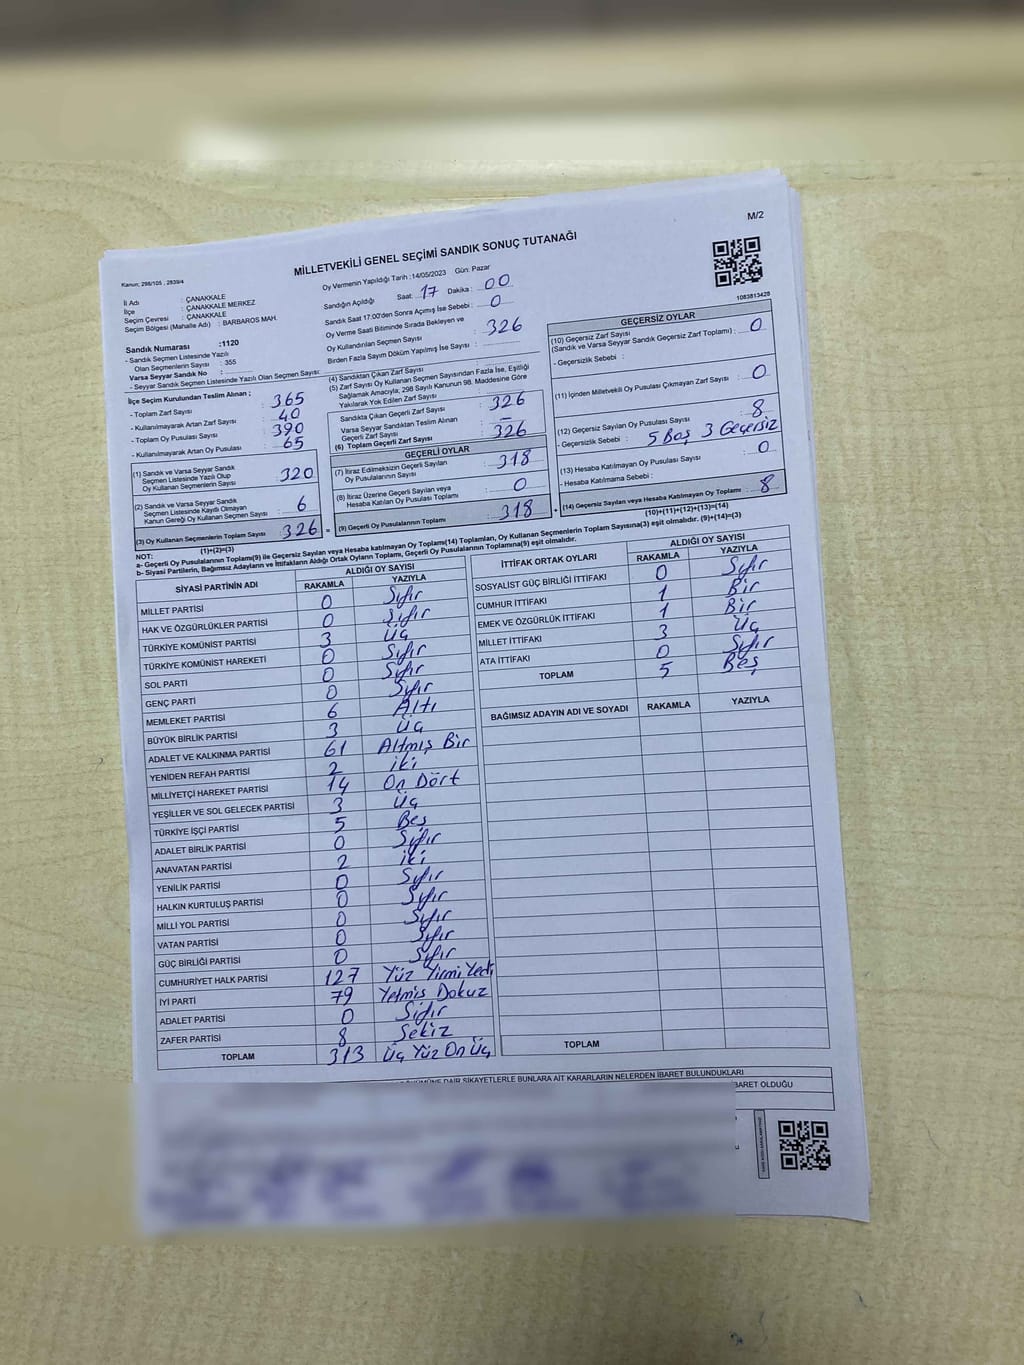 M/2
MİLLETVEKİLİ GENEL SEÇİMİ SANDIK SONUÇ TUTANAĞI
Kanun: 298/105 , 2839/4
1083813428
İl Adı : ÇANAKKALE
İlçe : ÇANAKKALE MERKEZ
Seçim Çevresi : ÇANAKKALE
Seçim Bölgesi (Mahalle Adı) : BARBAROS MAH.
Sandık Numarası :1120
- Sandık Seçmen Listesinde Yazılı
Olan Seçmenlerin Sayısı : 355
Varsa Seyyar Sandık No :
- Seyyar Sandık Seçmen Listesinde Yazılı Olan Seçmen Sayısı:
Oy Vermenin Yapıldığı Tarih : 14/05/2023 Gün: Pazar
Sandığın Açıldığı Saat: 17 Dakika : 00
Sandık Saat 17:00'den Sonra Açımış İse Sebebi : 0
Oy Verme Saati Bitiminde Sırada Bekleyen ve
Oy Kullandırılan Seçmen Sayısı : 326
Birden Fazla Sayım Döküm Yapılmış İse Sayısı :
İlçe Seçim Kurulundan Teslim Alınan ;
- Toplam Zarf Sayısı : 365
- Kullanılmayarak Artan Zarf Sayısı : 40
- Toplam Oy Pusulası Sayısı : 390
- Kullanılmayarak Artan Oy Pusulası : 65
(1) Sandık ve Varsa Seyyar Sandık
Seçmen Listesinde Yazılı Olup
Oy Kullanan Seçmenlerin Sayısı : 320
(2) Sandık ve Varsa Seyyar Sandık
Seçmen Listesinde Kayıtlı Olmayan
Kanun Gereği Oy Kullanan Seçmen Sayısı : 6
(3) Oy Kullanan Seçmenlerin Toplam Sayısı : 326 =
(1)+(2)=(3)
(4) Sandıktan Çıkan Zarf Sayısı :
(5) Zarf Sayısı Oy Kullanan Seçmen Sayısından Fazla İse, Eşitliği
Sağlamak Amacıyla, 298 Sayılı Kanunun 98. Maddesine Göre
Yakılarak Yok Edilen Zarf Sayısı :
Sandıkta Çıkan Geçerli Zarf Sayısı : 326
Varsa Seyyar Sandıktan Teslim Alınan
Geçerli Zarf Sayısı : –
(6) Toplam Geçerli Zarf Sayısı : 326
GEÇERLİ OYLAR
(7) İtiraz Edilmeksizin Geçerli Sayılan
Oy Pusulalarının Sayısı : 318
(8) İtiraz Üzerine Geçerli Sayılan veya
Hesaba Katılan Oy Pusulası Toplamı : 0
(9) Geçerli Oy Pusulalarının Toplamı : 318 +
GEÇERSİZ OYLAR
(10) Geçersiz Zarf Sayısı
(Sandık ve Varsa Seyyar Sandık Geçersiz Zarf Toplamı) : 0
- Geçersizlik Sebebi :
(11) İçinden Milletvekili Oy Pusulası Çıkmayan Zarf Sayısı : 0
(12) Geçersiz Sayılan Oy Pusulası Sayısı : 8
- Geçersizlik Sebebi : 5 Boş 3 Geçersiz
(13) Hesaba Katılmayan Oy Pusulası Sayısı : 0
- Hesaba Katılmama Sebebi :
(14) Geçersiz Sayılan veya Hesaba Katılmayan Oy Toplamı : 8
(10)+(11)+(12)+(13)=(14)
NOT:
a- Geçerli Oy Pusulaların Toplamı(9) ile Geçersiz Sayılan veya Hesaba katılmayan Oy Toplamı(14) Toplamları, Oy Kullanan Seçmenlerin Toplam Sayısına(3) eşit olmalıdır. (9)+(14)=(3)
b- Siyasi Partilerin, Bağımsız Adayların ve İttifakların Aldığı Ortak Oyların Toplamı, Geçerli Oy Pusulalarının Toplamına(9) eşit olmalıdır.
SİYASİ PARTİNİN ADI ALDIĞI OY SAYISI
RAKAMLA YAZIYLA
MİLLET PARTİSİ 0 Sıfır
HAK VE ÖZGÜRLÜKLER PARTİSİ 0 Sıfır
TÜRKİYE KOMÜNİST PARTİSİ 3 Üç
TÜRKİYE KOMÜNİST HAREKETİ 0 Sıfır
SOL PARTİ 0 Sıfır
GENÇ PARTİ 0 Sıfır
MEMLEKET PARTİSİ 6 Altı
BÜYÜK BİRLİK PARTİSİ 3 Üç
ADALET VE KALKINMA PARTİSİ 61 Altmış Bir
YENİDEN REFAH PARTİSİ 2 İki
MİLLİYETÇİ HAREKET PARTİSİ 14 On Dört
YEŞİLLER VE SOL GELECEK PARTİSİ 3 Üç
TÜRKİYE İŞÇİ PARTİSİ 5 Beş
ADALET BİRLİK PARTİSİ 0 Sıfır
ANAVATAN PARTİSİ 2 İki
YENİLİK PARTİSİ 0 Sıfır
HALKIN KURTULUŞ PARTİSİ 0 Sıfır
MİLLİ YOL PARTİSİ 0 Sıfır
VATAN PARTİSİ 0 Sıfır
GÜÇ BİRLİĞİ PARTİSİ 0 Sıfır
CUMHURİYET HALK PARTİSİ 127 Yüz Yirmi Yedi
İYİ PARTİ 79 Yetmiş Dokuz
ADALET PARTİSİ 0 Sıfır
ZAFER PARTİSİ 8 Sekiz
TOPLAM 313 Üç Yüz On Üç
İTTİFAK ORTAK OYLARI ALDIĞI OY SAYISI
RAKAMLA YAZIYLA
SOSYALİST GÜÇ BİRLİĞİ İTTİFAKI 0 Sıfır
CUMHUR İTTİFAKI 1 Bir
EMEK VE ÖZGÜRLÜK İTTİFAKI 1 Bir
MİLLET İTTİFAKI 3 Üç
ATA İTTİFAKI 0 Sıfır
TOPLAM 5 Beş
BAĞIMSIZ ADAYIN ADI VE SOYADI RAKAMLA YAZIYLA
TOPLAM
DAİR ŞİKAYETLERLE BUNLARA AİT KARARLARIN NELERDEN İBARET BULUNDUKLARI
İBARET OLDUĞU